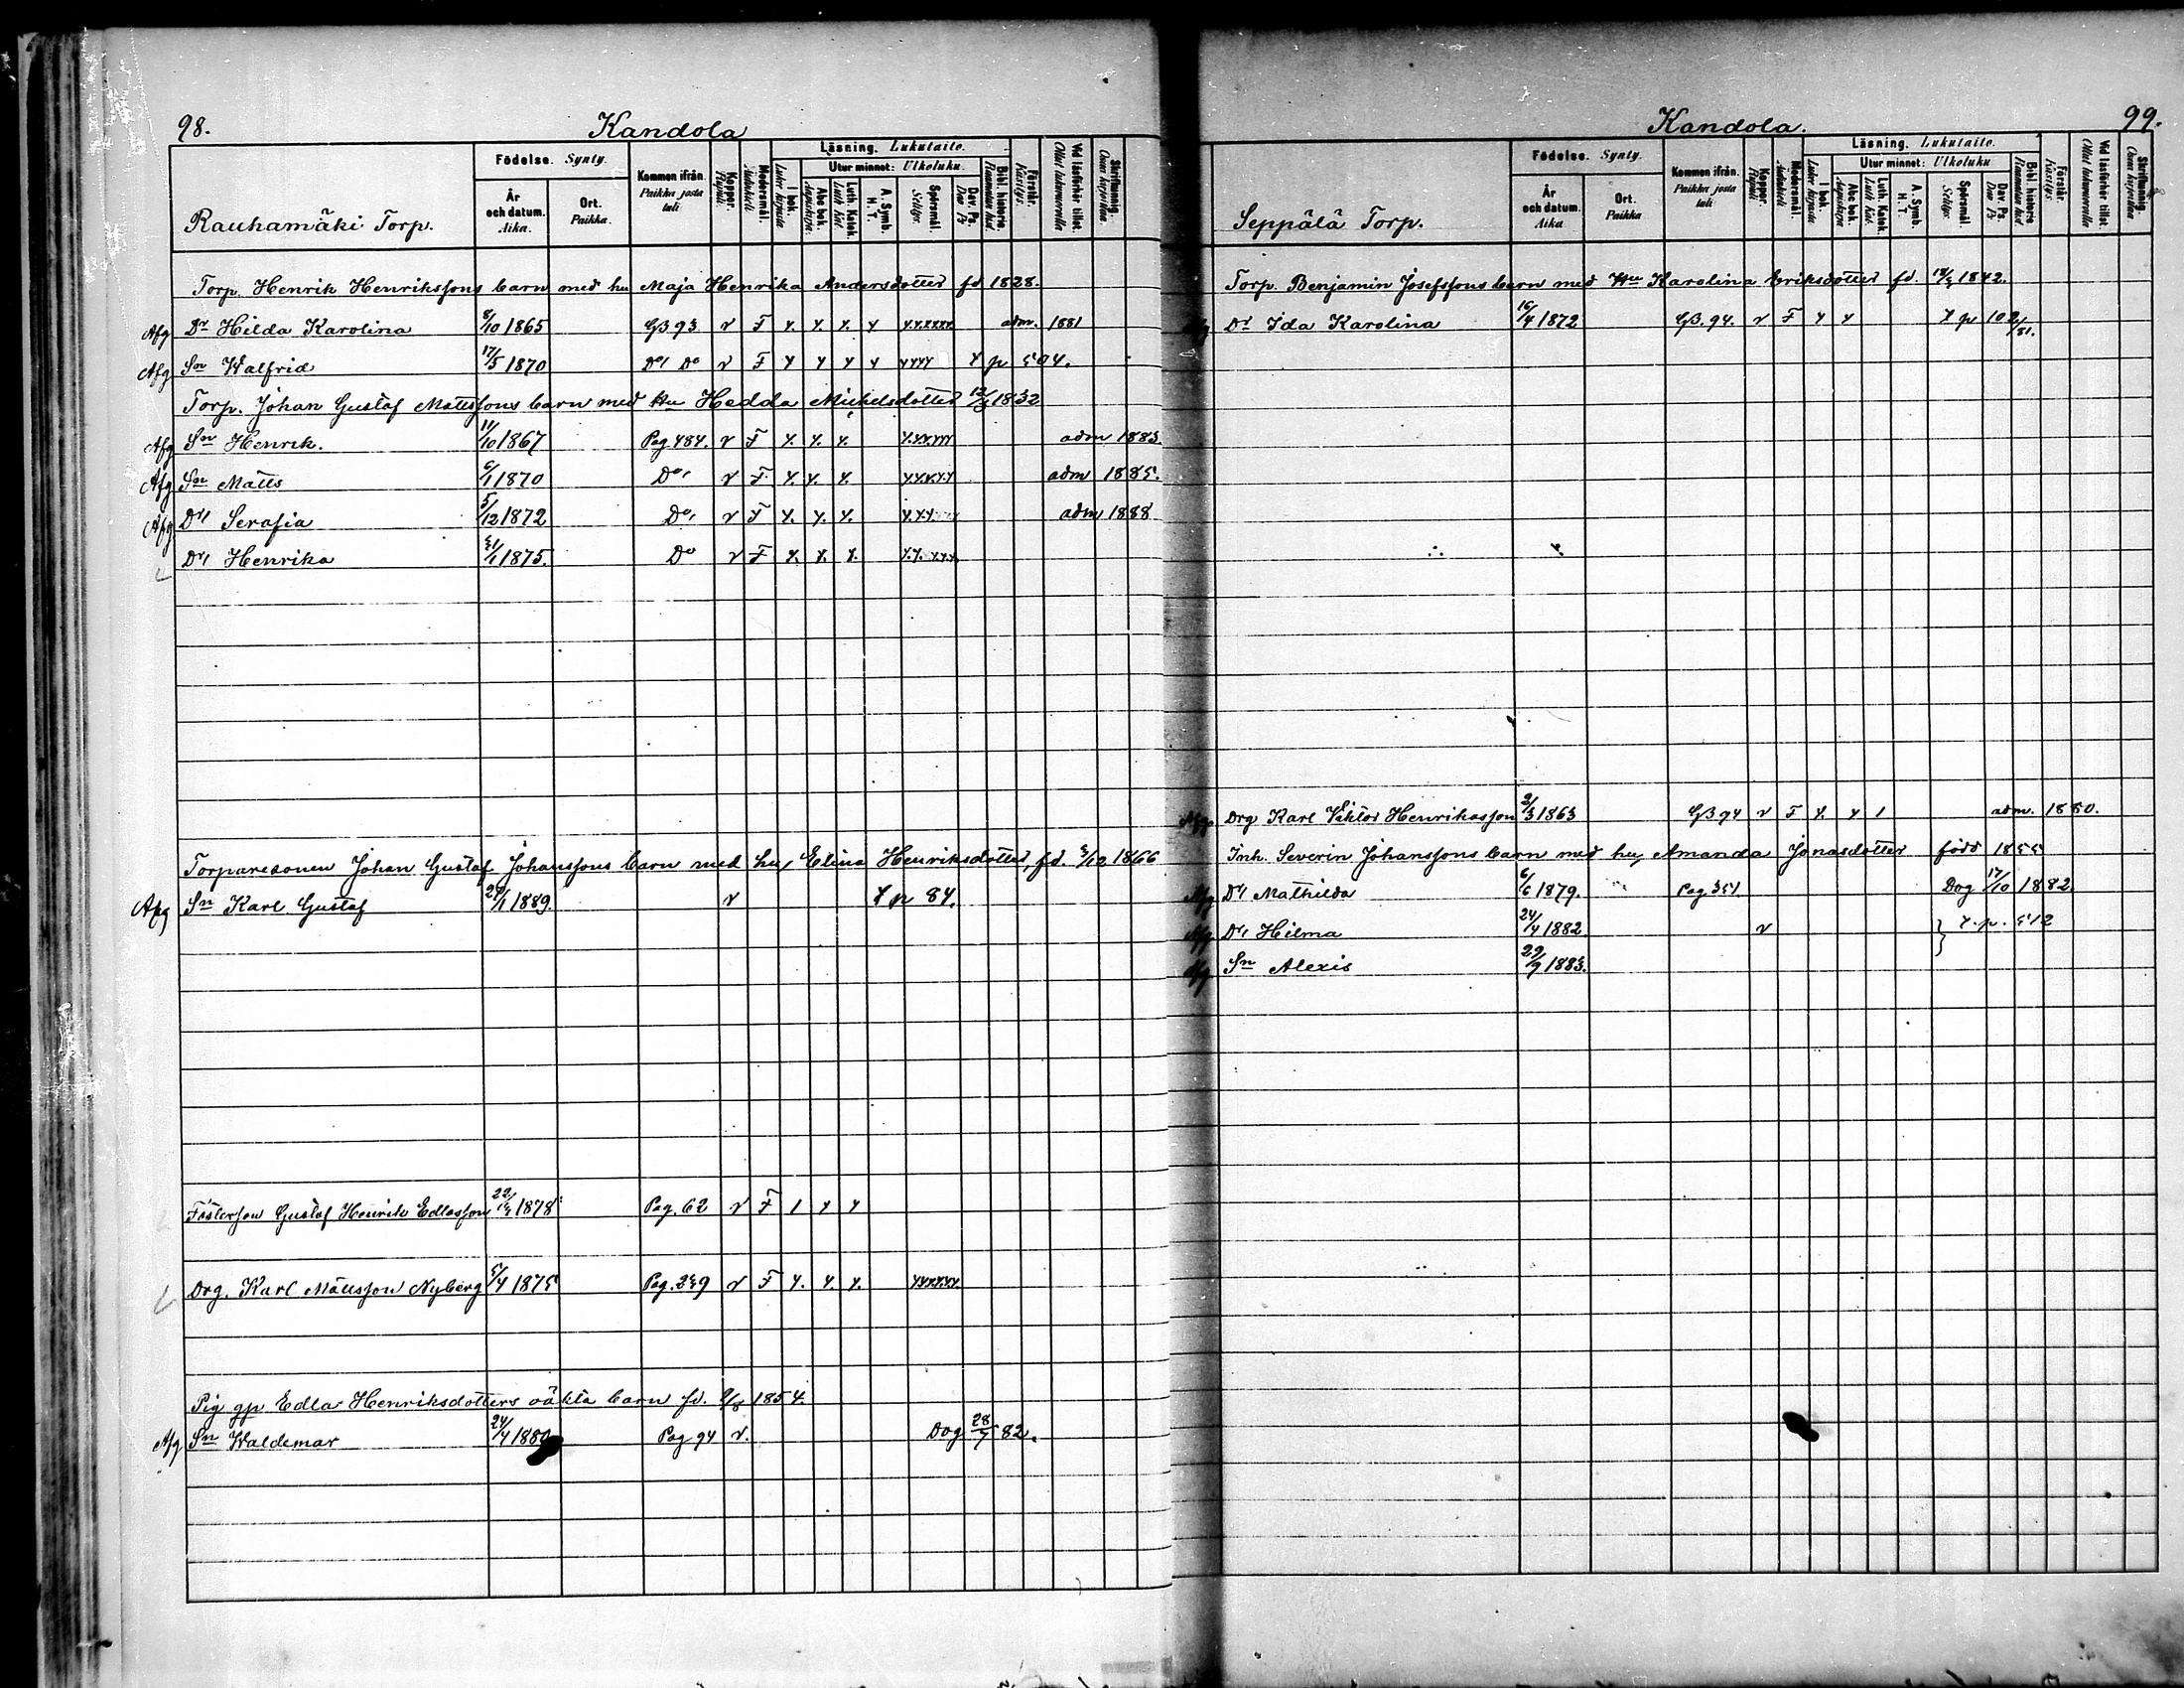 98.
Kandola
Rauhamäki Torp.
Födelse. Synty.
År och datum. Aika.
Ort. Paikka.
Kommen ifrån. Paikka josta tuli.
Koppor. Rupuli.
Modersmål. Äidinkieli.
Läsning. Lukutaito.
I bok. Lukee kirjasta
Utur minnet: Ulkoluku.
Abc bok. Aapiskirja.
Luth. Katek. Luth. Kat.
A. Symb. H. T.
Spörsmål. Selitys.
Dav. Ps. Dav. Ps
Bibl. historie. Raamatun hist.
Förstår. Käsitys.
Vid läsförhör tillst. Ollut lukuvuorolla
Skriftunning. Osaa kirjoittaa.
Torp. Henrik Henrikssons barn med hu Maja Henrika Andersdotter fd 1828.
Afg Dr Hilda Karolina 8/10 1865 GB 93 v F x. x. x. x x.x.xxxx adm. 1881
Afg Sn Walfrid 17/5 1870 Do Do v F x x x x xxxx x p 504.
Torp. Johan Gustaf Mattssons barn med Hu Hedda Michelsdotter 1832
Afg Sn Henrik. 11/10 1867 Pag 484. v F x. x. x. x.x.x.xxx adm 1883.
Afg Sn Matts 6/1 1870 Do v F x. x. x. x.x.x.x.x adm 1885.
Afg Dr Serafia 5/12 1872 Do v F x. x. x. x.x.x adm 1888
Dr Henrika 31/1 1875. Do v F x. x. x. x.x. x.x.x
Torparesonen Johan Gustaf Johanssons barn med hu, Elina Henriksdotter, fd. 1866
Afg Sn Karl Gustaf 29/1 1889. v x p 84.
Fosterson Gustaf Henrik Edlasson 1878 Pag. 62 v F 1 x x
Drg. Karl Mattsson Nyberg 5/4 1875 Pag. 239 v F x. x. x. xxxxxx.
Pig gp Edla Henriksdotters oäkta barn fd. 9/8 1854.
Afg Sn Waldemar 24/4 1880 Pag 94 v. Dog 28/7 82.
Kandola.
99.
Seppälä Torp.
Födelse. Synty.
År och datum. Aika
Ort. Paikka
Kommen ifrån. Paikka josta tuli
Koppor. Rupuli.
Modersmål. Äidinkieli.
Läsning. Lukutaito.
I bok. Lukee kirjasta
Utur minnet: Ulkoluku
Abc bok. Aapiskirja
Luth. Katek. Luth. Kat.
A. Symb. H. T.
Spörsmål. Selitys.
Dav. Ps. Dav. Ps
Bibl. historie Raamatun hist.
Förstår. Käsitys.
Vid läsförhör tillst. Ollut lukuvuorolla
Skriftunning. Osaa kirjoittaa
Torp. Benjamin Josefssons barn med Hu Karolina Eriksdotter fd. 1842.
Dr Ida Karolina 16/4 1872 GB. 94. v F x x x p 102/81.
Drg Karl Viktor Henriksson 2/3 1863 GB 94 v F x. x 1 adm. 1880.
Inh. Severin Johanssons barn med hu, Amanda Jonasdotter född 1855
Afg Dr Mathilda 6/6 1879. Pag. 351 Dog 17/10 1882
Afg Dr Hilma 24/4 1882 v } x. p. 512
Afg Sn Alexis 29/9 1883.